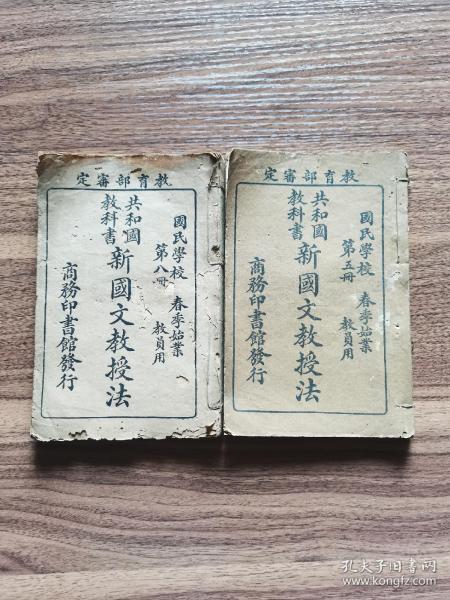 教育部審定
國民學校 春季始業
第八冊 教員用
共和國
教科書
新國文教授法
商務印書館發行
教育部審定
國民學校 春季始業
第五冊 教員用
共和國
教科書
新國文教授法
商務印書館發行
孔夫子旧书网
www.kongfz.com